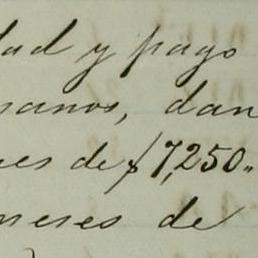 dad y pago
manos, dan
nes de $7,250„
meses de